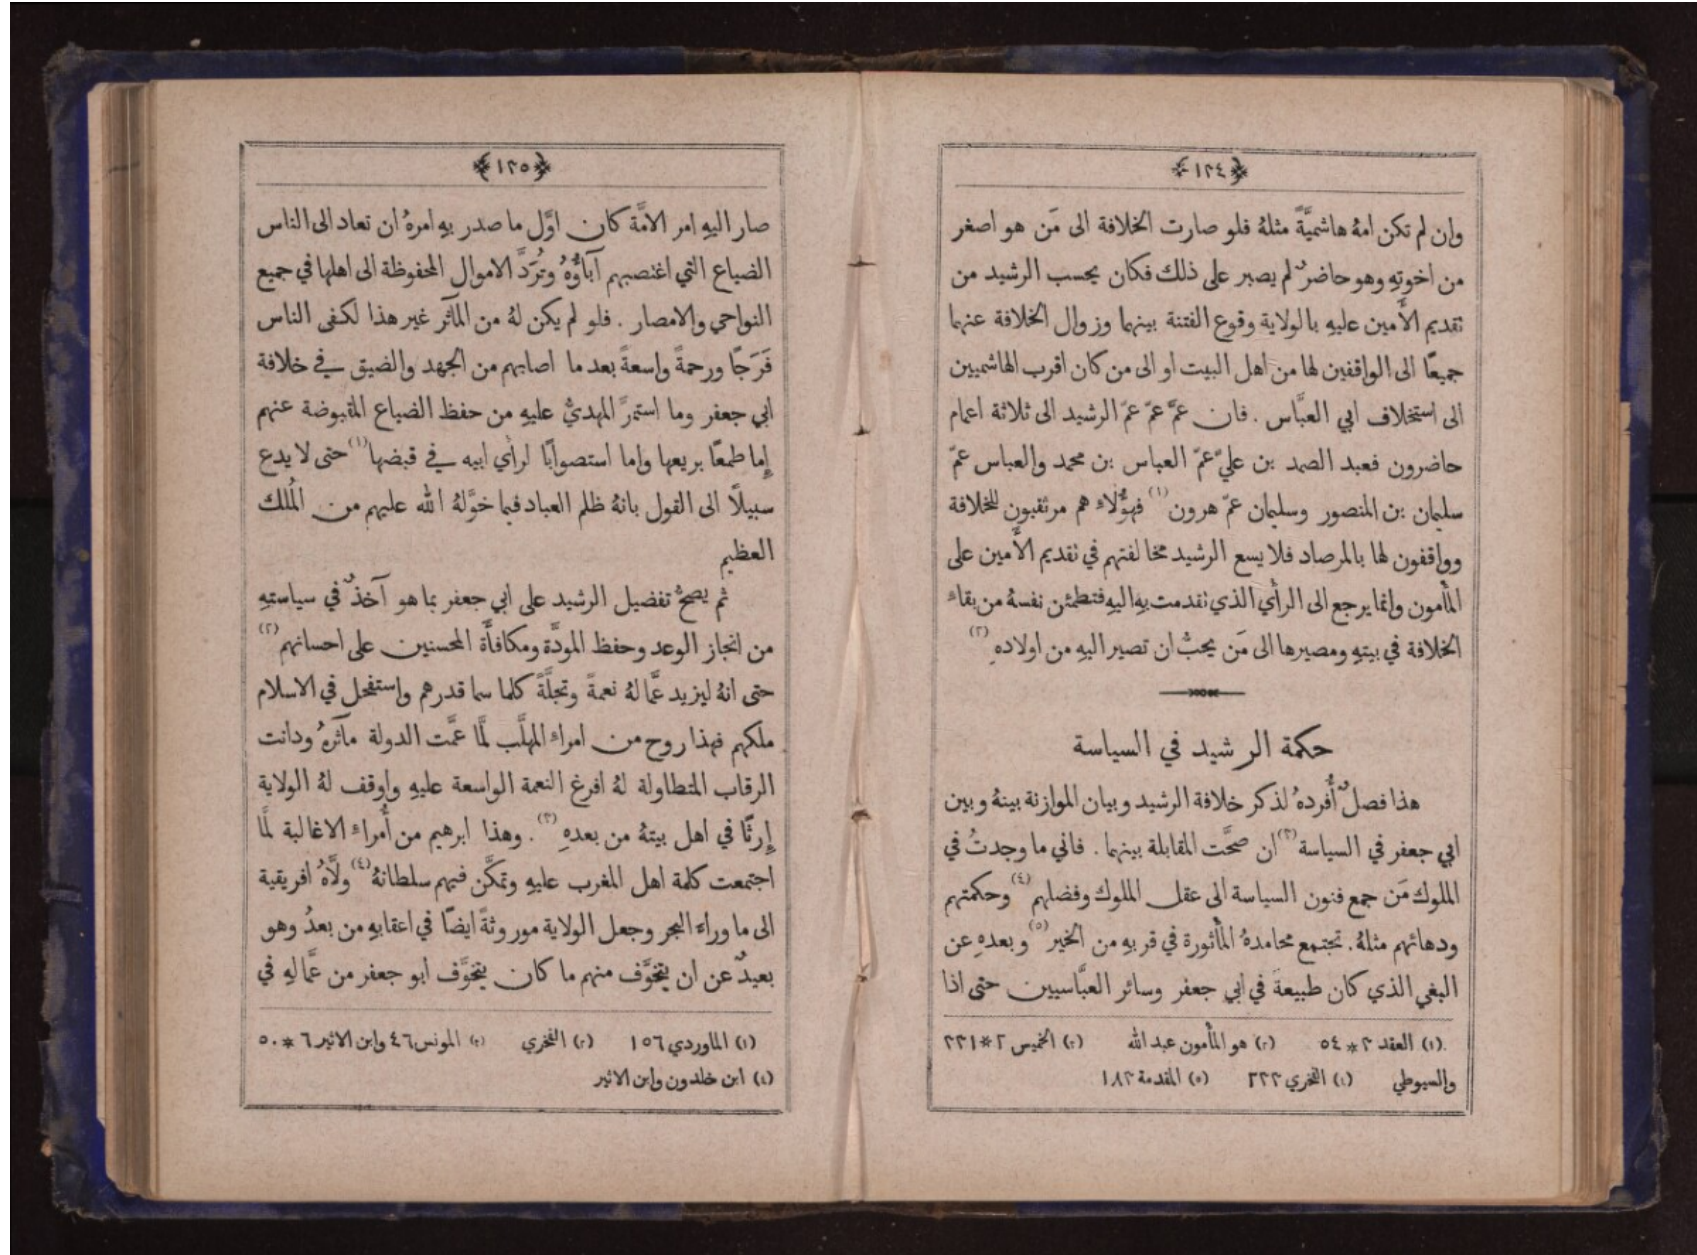 ﴿١٢٤﴾
وان لم تكن امهُ هاشميَّةً مثلهُ فلو صارت الخلافة الى مَن هو اصغر
من اخوتهِ وهو حاضرٌ لم يصبر على ذلك فكان يحسب الرشيد من
تقديم الأَمين عليهِ بالولاية وقوع الفتنة بينهما وزوال الخلافة عنهما
جميعًا الى الواقفين لها من اهل البيت او الى من كان اقرب الهاشميين
الى استخلاف ابي العبَّاس . فان عمَّ عمّ عمّ الرشيد الى ثلاثة اعمام
حاضرون فعبد الصمد بن عليّ عمّ العباس بن محمد والعباس عمّ
سليمان بن المنصور وسليمان عمّ هرون(١) فهؤُلاءِ هم مرتقبون للخلافة
وواقفون لها بالمرصاد فلا يسع الرشيد مخالفتهم في تقديم الأَمين على
المأمون وانما يرجع الى الرأي الذي تقدمت بهِ اليهِ فتطمئن نفسهُ من بقاءِ
الخلافة في بيتهِ ومصيرها الى مَن يحبُّ ان تصير اليهِ من اولادهِ(٢)
حكمة الرشيد في السياسة
هذا فصلٌ أُفردهُ لذكر خلافة الرشيد وبيان الموازنة بينهُ وبين
ابي جعفر في السياسة(٣) ان صحَّت المقابلة بينهما . فاني ما وجدتُ في
الملوك مَن جمع فنون السياسة الى عقل الملوك وفضلهم(٤) وحكمتهم
ودهائهم مثلهُ. تجتمع محامدهُ المأثورة في قربهِ من الخير(٥) وبعدهِ عن
البغي الذي كان طبيعةً في ابي جعفر وسائر العبَّاسيين حتى اذا
(١) العقد ٣*٥٤ (٢) هو المأمون عبد الله (٣) الخميس ٢*٣٣١
والسيوطي (٤) الفخري ٢٣٣ (٥) المقدمة ١٨٣
﴿١٢٥﴾
صار اليهِ امر الامَّة كان اوَّل ما صدر بهِ امرهُ ان تعاد الى الناس
الضياع التي اغتصبهم آباؤُهُ وتُرَدَّ الاموال المحفوظة الى اهلها في جميع
النواحي والامصار . فلو لم يكن لهُ من المآثر غير هذا لكفى الناس
فَرَجًا ورحمةً واسعةً بعد ما اصابهم من الجهد والضيق في خلافة
ابي جعفر وما استمرَّ المهديُّ عليهِ من حفظ الضياع المقبوضة عنهم
إِما طمعًا بريعها واما استصوابًا لرأي ابيه في قبضها(١) حتى لا يدع
سبيلًا الى القول بانهُ ظلم العباد فيما خوَّلهُ الله عليهم من المُلك
العظيم
ثم يصحُّ تفضيل الرشيد على ابي جعفر بما هو آخذٌ في سياستهِ
من انجاز الوعد وحفظ المودَّة ومكافأَة المحسنين على احسانهم(٢)
حتى انهُ ليزيد عمَّالهُ نعمةً وتجلَّةً كلما سما قدرهم واستفحل في الاسلام
ملكهم فهذا روح من امراءِ المهلَّب لمَّا عمَّت الدولة مآثرهُ ودانت
الرقاب المتطاولة لهُ افرغ النعمة الواسعة عليهِ واوقف لهُ الولاية
إِرثًا في اهل بيتهُ من بعدهِ(٣). وهذا ابرهيم من أُمراءِ الاغالبة لمَّا
اجتمعت كلمة اهل المغرب عليهِ وتمكَّن فيهم سلطانهُ(٤) ولَّاهُ افريقية
الى ما وراءَ البحر وجعل الولاية موروثةً ايضًا في اعقابهِ من بعدُ وهو
بعيدٌ عن ان يتخوَّف منهم ما كان يتخوَّف ابو جعفر من عمَّالهِ في
(١) الماوردي ١٥٦ (٢) الفخري (٣) المونس ٤٦ وابن الاثير ٦*٥٠
(٤) ابن خلدون وابن الاثير